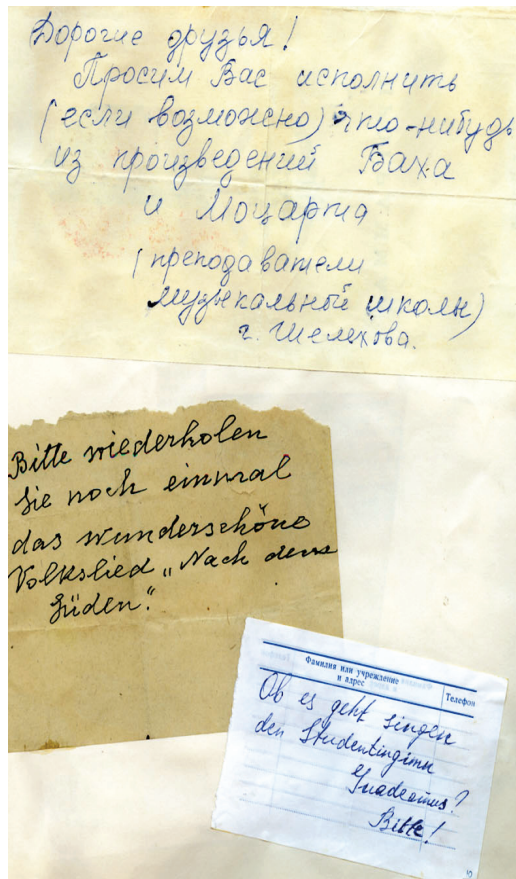 Дорогие друзья!
Просим Вас исполнить
(если возможно) что-нибудь
из произведений Баха
и Моцарта
(преподаватели
музыкальной школы)
г. Шелехова.
Bitte wiederholen
Sie noch einmal
das wunderschöne
Volkslied „Nach dem
Süden".
Фамилия или учреждение
и адрес
Телефон
Ob es geht singen
den Studentingimn
Guadeamus?
Bitte!